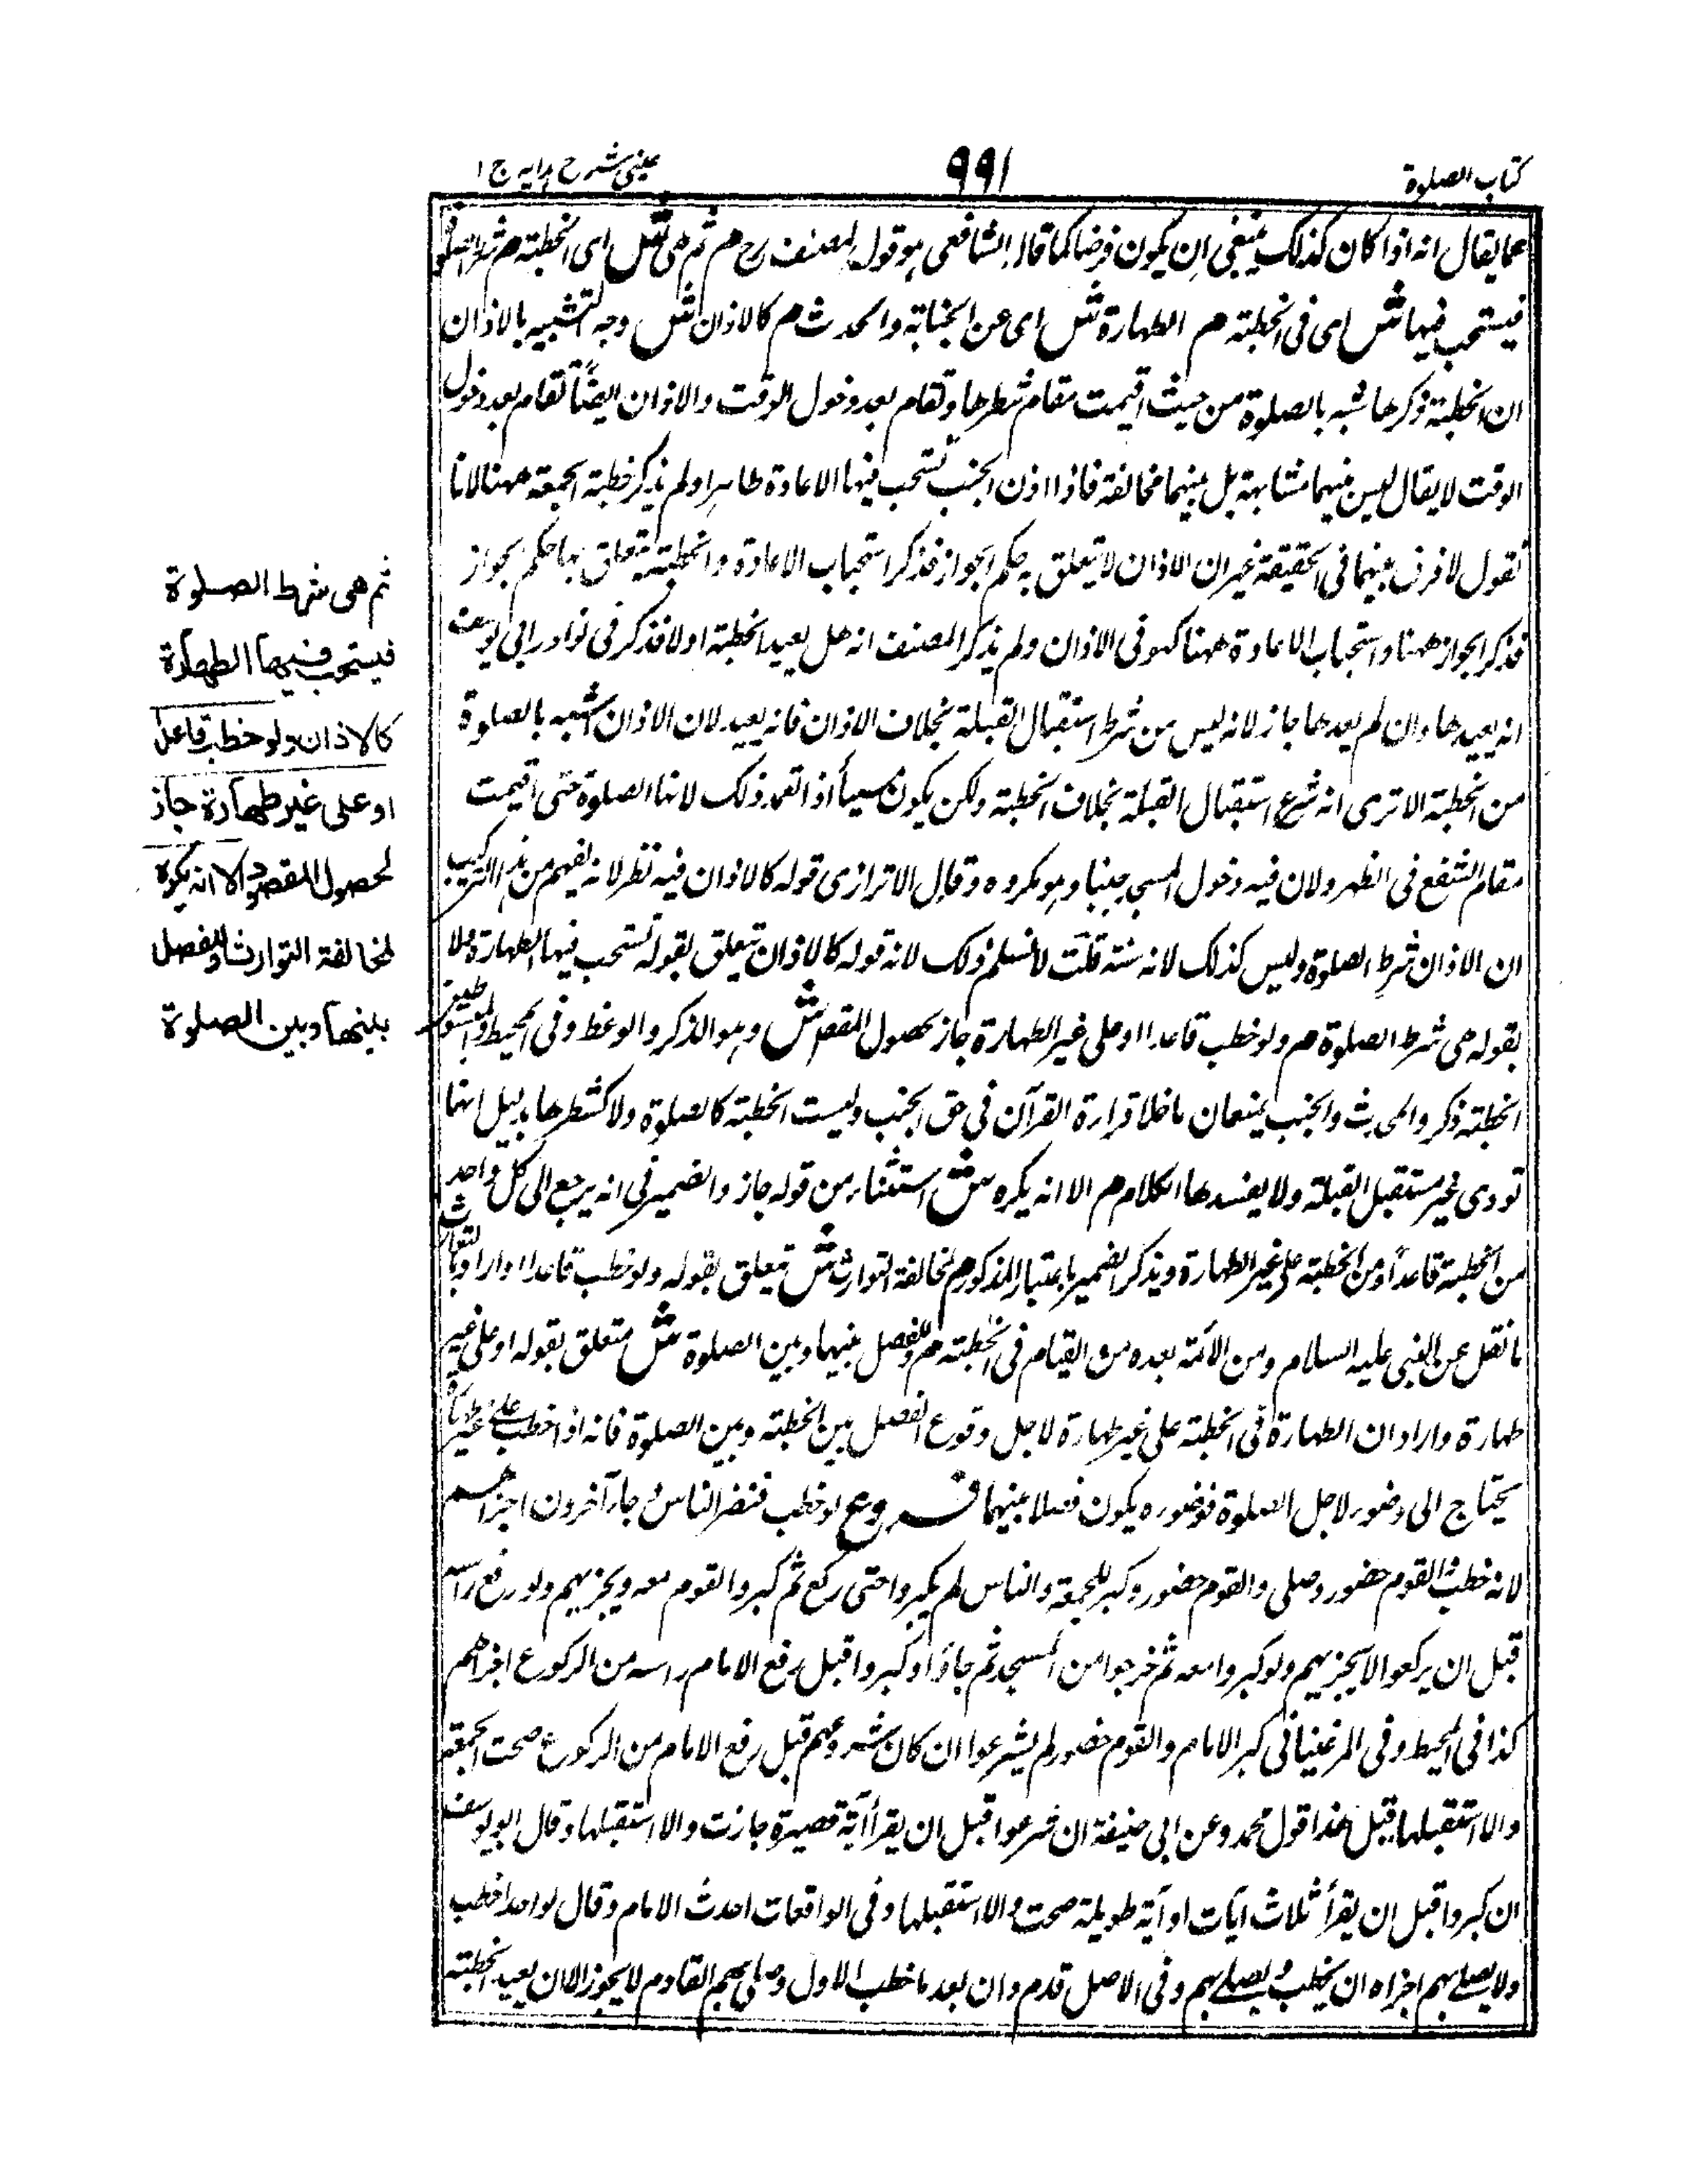 كتاب الصلوة
٩٩١
عينى شرح هدايه ج ١
عما يقال انه اذا كان كذلك ينبغى ان يكون فرضا كما قاله الشافعى هو قول المصنف رح هم ثم هى ش اى الخطبة هم شرط الصلوة
فيستحب فيها ش اى فى الخطبة هم الطهارة ش اى عن الجنابة والحدث م كالاذان ش وجه التشبيه بالاذان
ان الخطبة ذكرها شبه بالصلوة من حيث اقيمت مقام شطرها وتقام بعد دخول الوقت والاذان ايضًا تقام بعد دخول
الوقت لا يقال ليس بينهما مشابهة بل بينهما مخالفة فاذا اذن الجنب تستحب فيها الاعادة ظاهرا ولم يذكر خطبة الجمعة ههنا لانا
نقول لا فرق بينهما فى الحقيقة غير ان الاذان لا يتعلق به حكم الجواز فذكر استحباب الاعادة والخطبة يتعلق بها حكم بجواز
فذكر الجواز ههنا واستحباب الاعادة ههنا كهو فى الاذان ولم يذكر المصنف انه هل يعيد الخطبة اولا فذكر فى نوادر ابى يوسف
انه يعيدها وان لم يعدها جاز لانه ليس من شرط استقبال القبلة بخلاف الاذان فانه يعيد لان الاذان اشبه بالصلوة
من الخطبة الا ترى انه شرع استقبال القبلة بخلاف الخطبة ولكن يكون مسيأ اذا تعمد ذلك لانها الصلوة حتى اقيمت
مقام الشفع فى الظهر ولان فيه دخول المسجد جنبا وهو مكروه وقال الاترازى قوله كالاذان فيه نظر لانه يفهم من هذا التركيب
ان الاذان شرط الصلوة وليس كذلك لانه سنة قلت لا نسلم ذلك لانه قوله كالاذان يتعلق بقوله تستحب فيها الطهارة ولا
بقوله هى شرط الصلوة هم ولو خطب قاعدا او على غير الطهارة جاز لحصول المقصود ش وهو الذكر والوعظ وفى المحيط والمبسوط
الخطبة ذكر والمحدث والجنب يمنعان ما خلا قراءة القرآن فى حق الجنب وليست الخطبة كالصلوة ولا كشطرها بدليل انها
تودى غير مستقبل القبلة ولا يفسدها الكلام هم الا انه يكره ش استثناء من قوله جاز والضمير فى انه يرجع الى كل واحد
من الخطبة قاعداً ومن الخطبة على غير الطهارة ويذكر الضمير باعتبار المذكور هم لمخالفة التوارث ش يتعلق بقوله ولو خطب قاعدا واراد بالتوارث
ما نقل عن النبى عليه السلام ومن الأئمة بعده من القيام فى الخطبة هم وللفصل بينها وبين الصلوة ش متعلق بقوله او على غير
طهارة واراد ان الطهارة فى الخطبة على غير طهارة لاجل وقوع الفصل بين الخطبة وبين الصلوة فانه اذا خطب على غير طهارة
يحتاج الى وضوء لاجل الصلوة فوضوءه يكون فصلا بينهما فروع لو خطب فنفر الناس وجاء آخرون اجزاهم
لانه خطب والقوم حضور وصلى والقوم حضور وكبر للجمعة والناس لم يكبروا حتى ركع ثم كبروا القوم معه ويجزيهم ولو رفع راسه
قبل ان يركعوا لا يجزيهم ولو كبروا معه ثم خرجوا من المسجد ثم جاؤا وكبروا قبل رفع الامام راسه من الركوع اجزاهم
كذا فى المحيط وفى المرغينانى كبر الامام والقوم حضور لم يشرعوا ان كان شروعهم قبل رفع الامام من الركوع صحت الجمعة
والا استقبلها قبل هذا قول محمد وعن ابى حنيفة ان شرعوا قبل ان يقرأ آية قصيرة جازت والا استقبلها وقال ابو يوسف
ان كبروا قبل ان يقرأ ثلاث آيات او آية طويلة صحت والا استقبلها وفى الواقعات احدث الامام وقال لواحد اخطب
ولا يصلى بهم اجزاه ان يخطب ويصلى بهم وفى الاصل قدم وان بعد ما خطب الاول وصلى بهم القادم لا يجوز الا ان يعيد الخطبة
ثم هى شرط الصلوة
فيستحب فيها الطهارة
كالاذان ولو خطب قاعدا
او على غير طهارة جاز
لحصول المقصود الا انه يكره
لمخالفة التوارث وللفصل
بينها وبين الصلوة